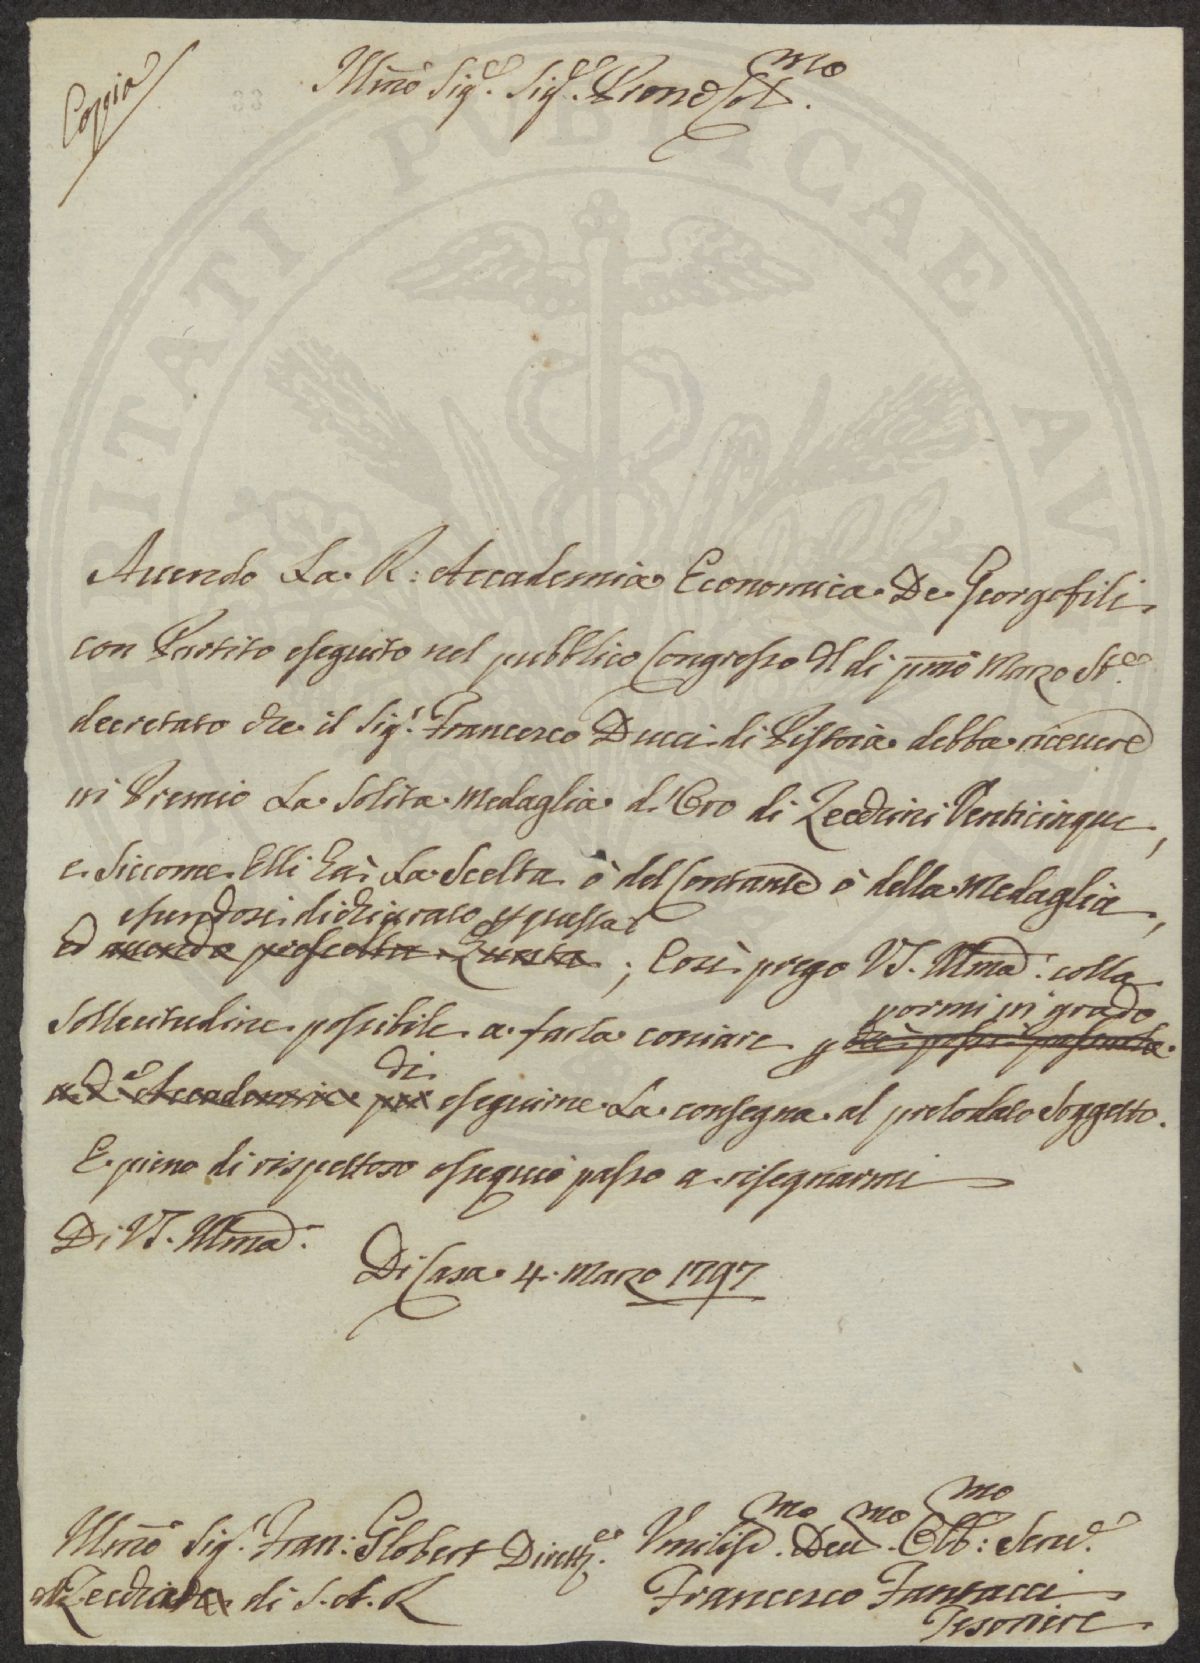 Coppia
Illmo Sig.re Sig.re Prone Col.mo
Avendo La R: Accademia Economica De Georgofili
con Partito eseguito nel pubblico Congresso Il di pmo Marzo St.e
decretato che il Sig.r Francesco Ducci di Pistoia debba ricevere
in Premio La Solita Medaglia d'Oro di Zecchini Venticinque,
e Siccome Elli ha La Scelta ò del Contante ò della Medaglia,
essendosi dichiarato p questa
ed avendo prescelta Questa; Così prego VS. Illma: colla
Sollecitudine possibile a farla coniare p
pormi in grado
di
Accademia per eseguirne La consegna al prelodato Soggetto.
E pieno di rispettoso ossequio passo a risegnarmi
Di VS. Illma.
Di Casa 4. Marzo 1797
Illmo Sig.r Fran: Globert Dirett.re
Zecchia di S. A. R
Umiliss.mo Dev.mo Obb:mo Serv.e
Francesco Fantacci
Tesoriere
PUBLICAE